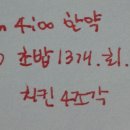 4:00 한약
초밥 13개. 회.
치킨 4조각